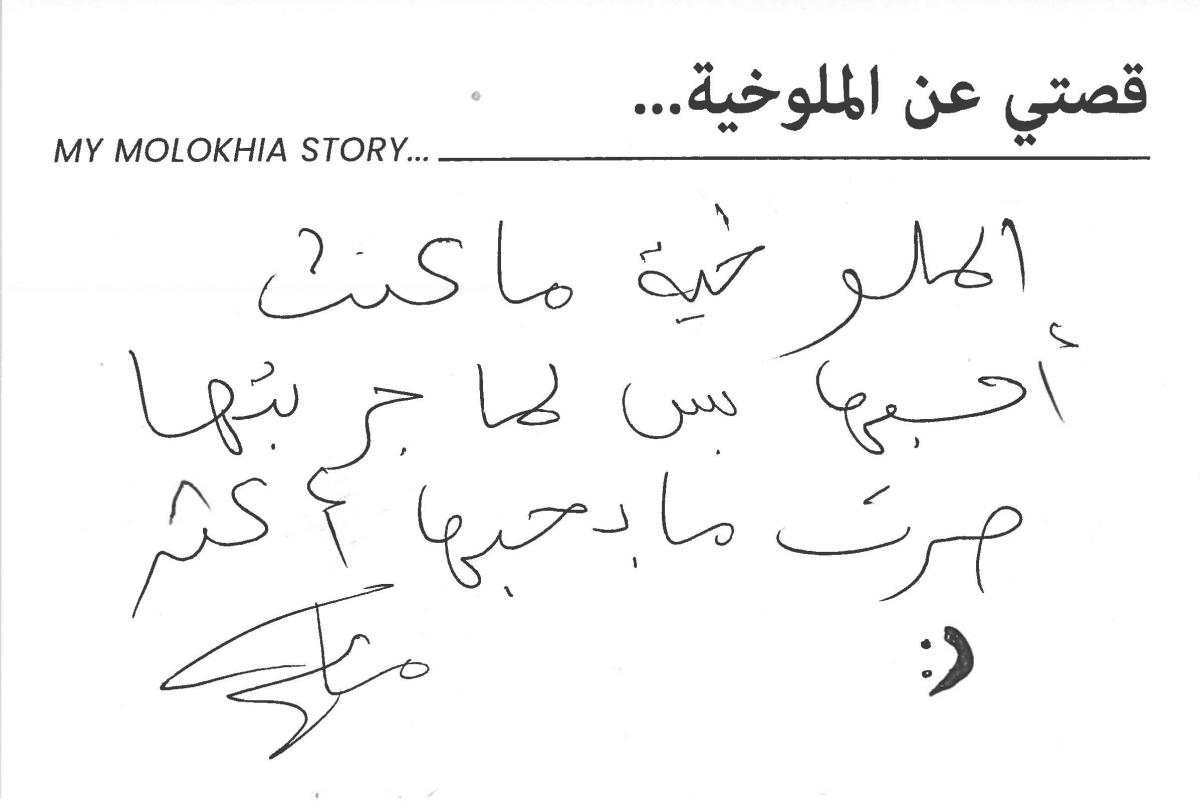 قصتي عن الملوخية...
MY MOLOKHIA STORY...
الملوخية ما كنت
أحبها بس لما جربتها
صرت ما بدحبها أكثر
:)